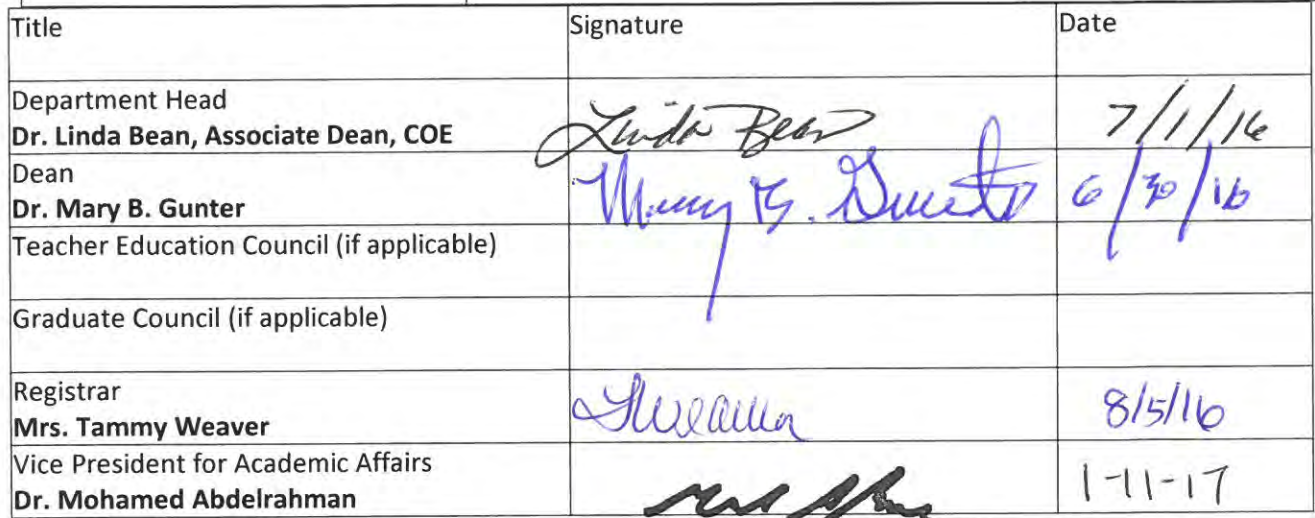 Title Signature Date
Department Head
Dr. Linda Bean, Associate Dean, COE Linda Bean 7/1/16
Dean
Dr. Mary B. Gunter Mary B. Gunter 6/30/16
Teacher Education Council (if applicable)
Graduate Council (if applicable)
Registrar
Mrs. Tammy Weaver TWeaver 8/5/16
Vice President for Academic Affairs
Dr. Mohamed Abdelrahman 1-11-17